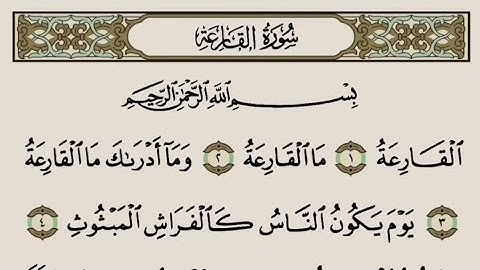 سُورَةُ القَارِعَةِ
بِسْمِ ٱللَّهِ ٱلرَّحْمَٰنِ ٱلرَّحِيمِ
ٱلْقَارِعَةُ ١ مَا ٱلْقَارِعَةُ ٢ وَمَآ أَدْرَىٰكَ مَا ٱلْقَارِعَةُ
٣ يَوْمَ يَكُونُ ٱلنَّاسُ كَٱلْفَرَاشِ ٱلْمَبْثُوثِ ٤